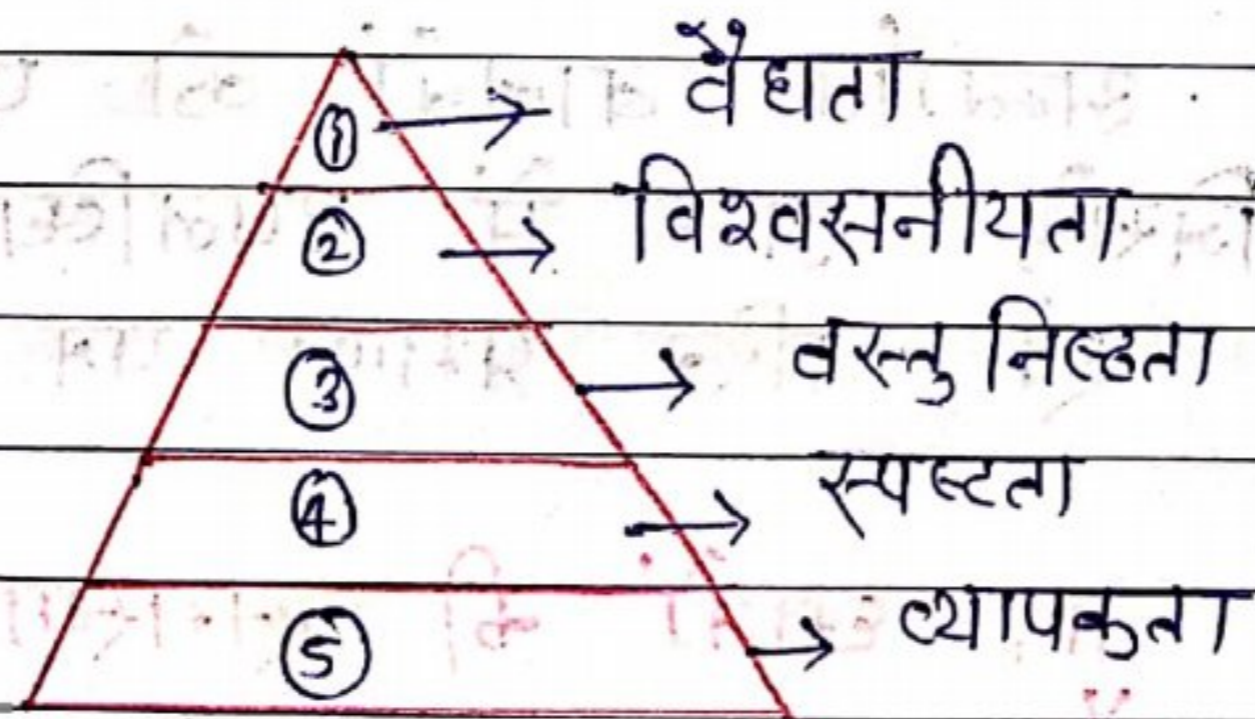 ① → वैधता
② → विश्वसनीयता
③ → वस्तुनिष्ठता
④ → स्पष्टता
⑤ → व्यापकता